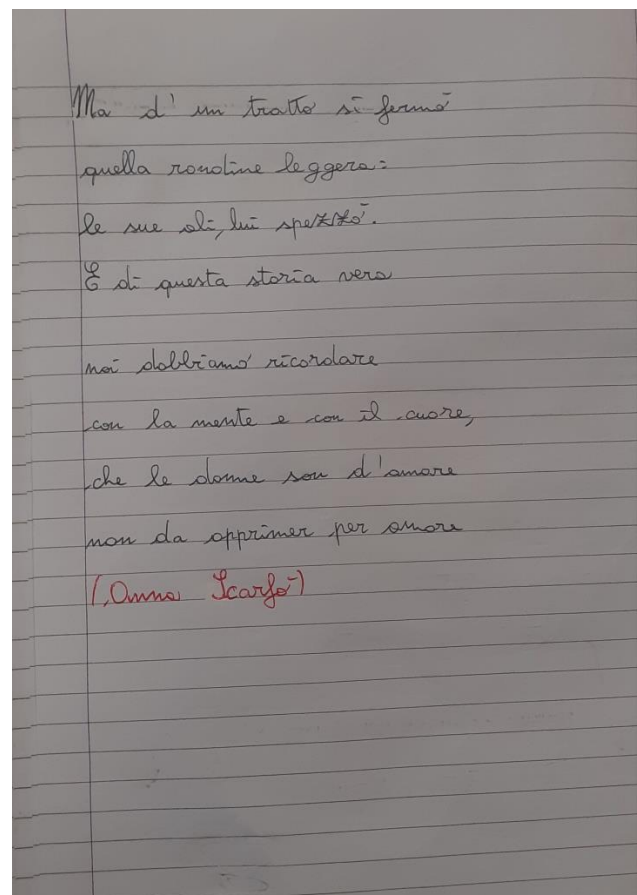 Ma d'un tratto si fermó
quella rondine leggera:
le sue ali, lui spezzó.
E di questa storia vera
noi dobbiamo ricordare
con la mente e con il cuore,
che le donne son d'amare
non da opprimer per amore
(Anna Scarfó)